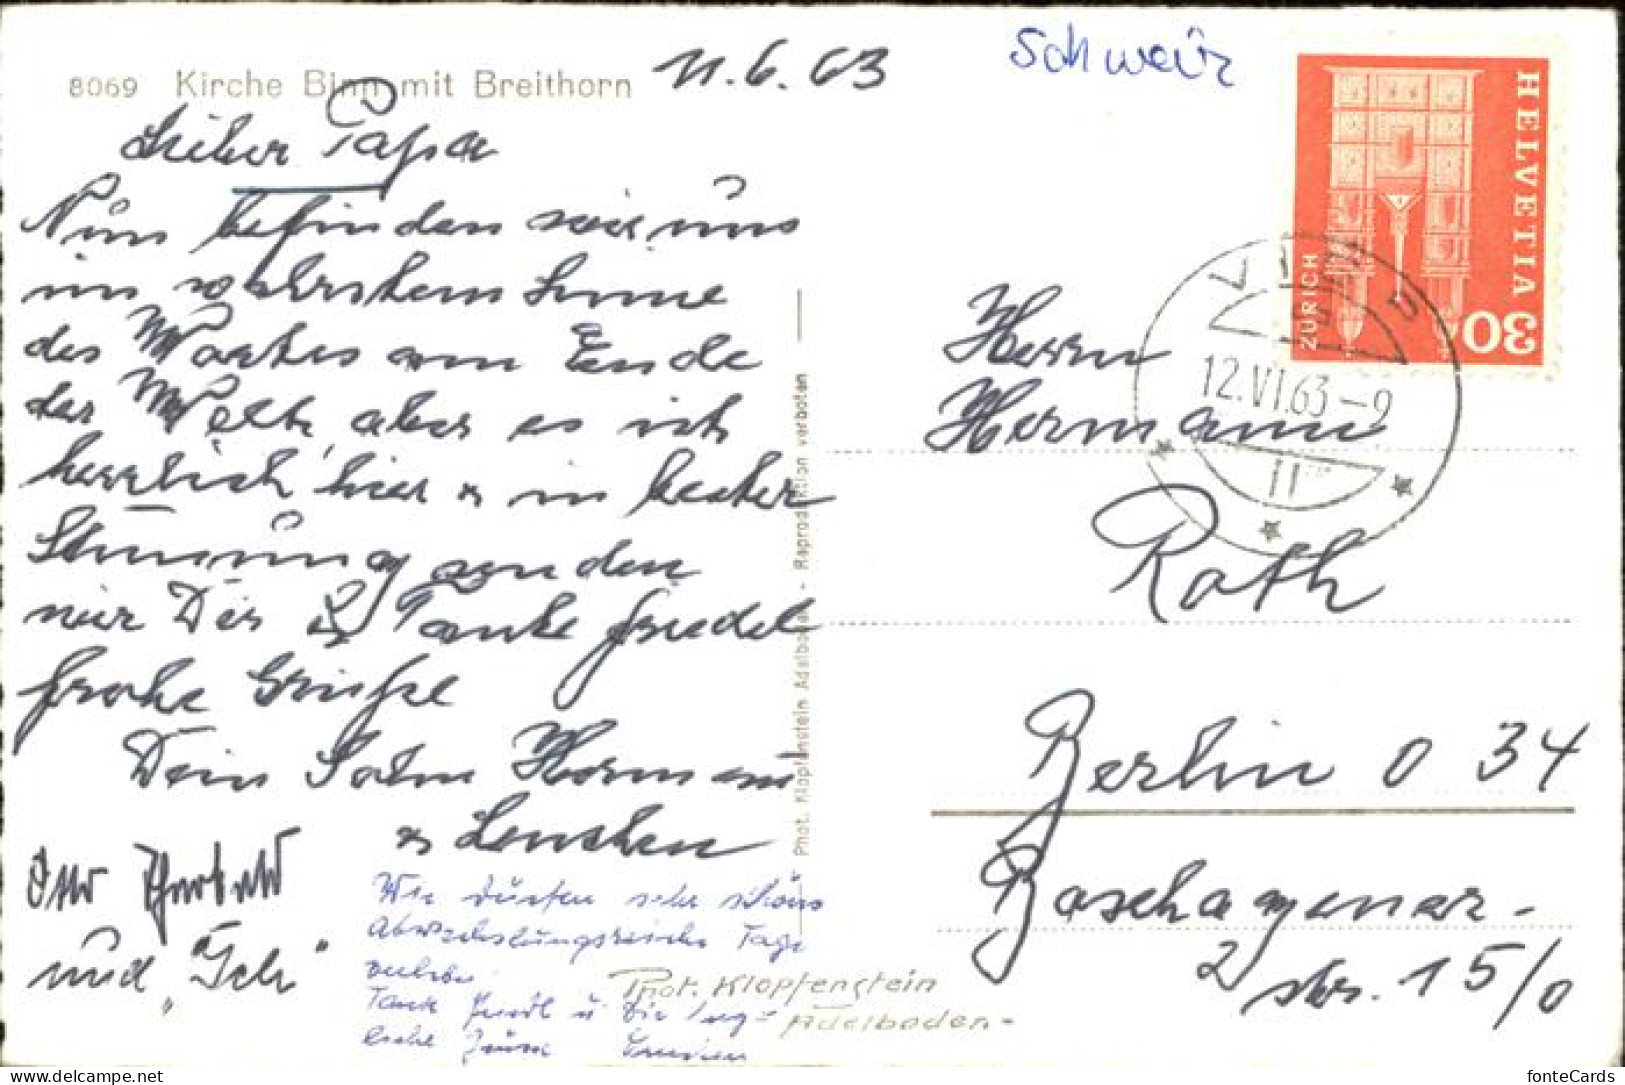 8069 Kirche Binn mit Breithorn
11.6.63
Schweiz
Lieber Papa
Nun befinden wir uns
im wahrsten Sinne
des Wortes am Ende
der Welt, aber es ist
herrlich hier u in bester
Stimmung senden
wir Dir & Tante Friedel
frohe Grüße
Dein Sohn Hermann
u Lenchen
Otto
und "Ich"
Wir durften sehr schöne
Abwechslungsreiche Tage
verleben
Tante Friedl u Dir
liebe Grüsse
Phot. Klopfenstein
Adelboden-
Phot. Klopfenstein Adelboden - Reproduktion verboten
HELVETIA
ZÜRICH
30
12.VI.63-9
Herrn
Hermann
Roth
Berlin O 34
Boxhagener-
str. 15/0